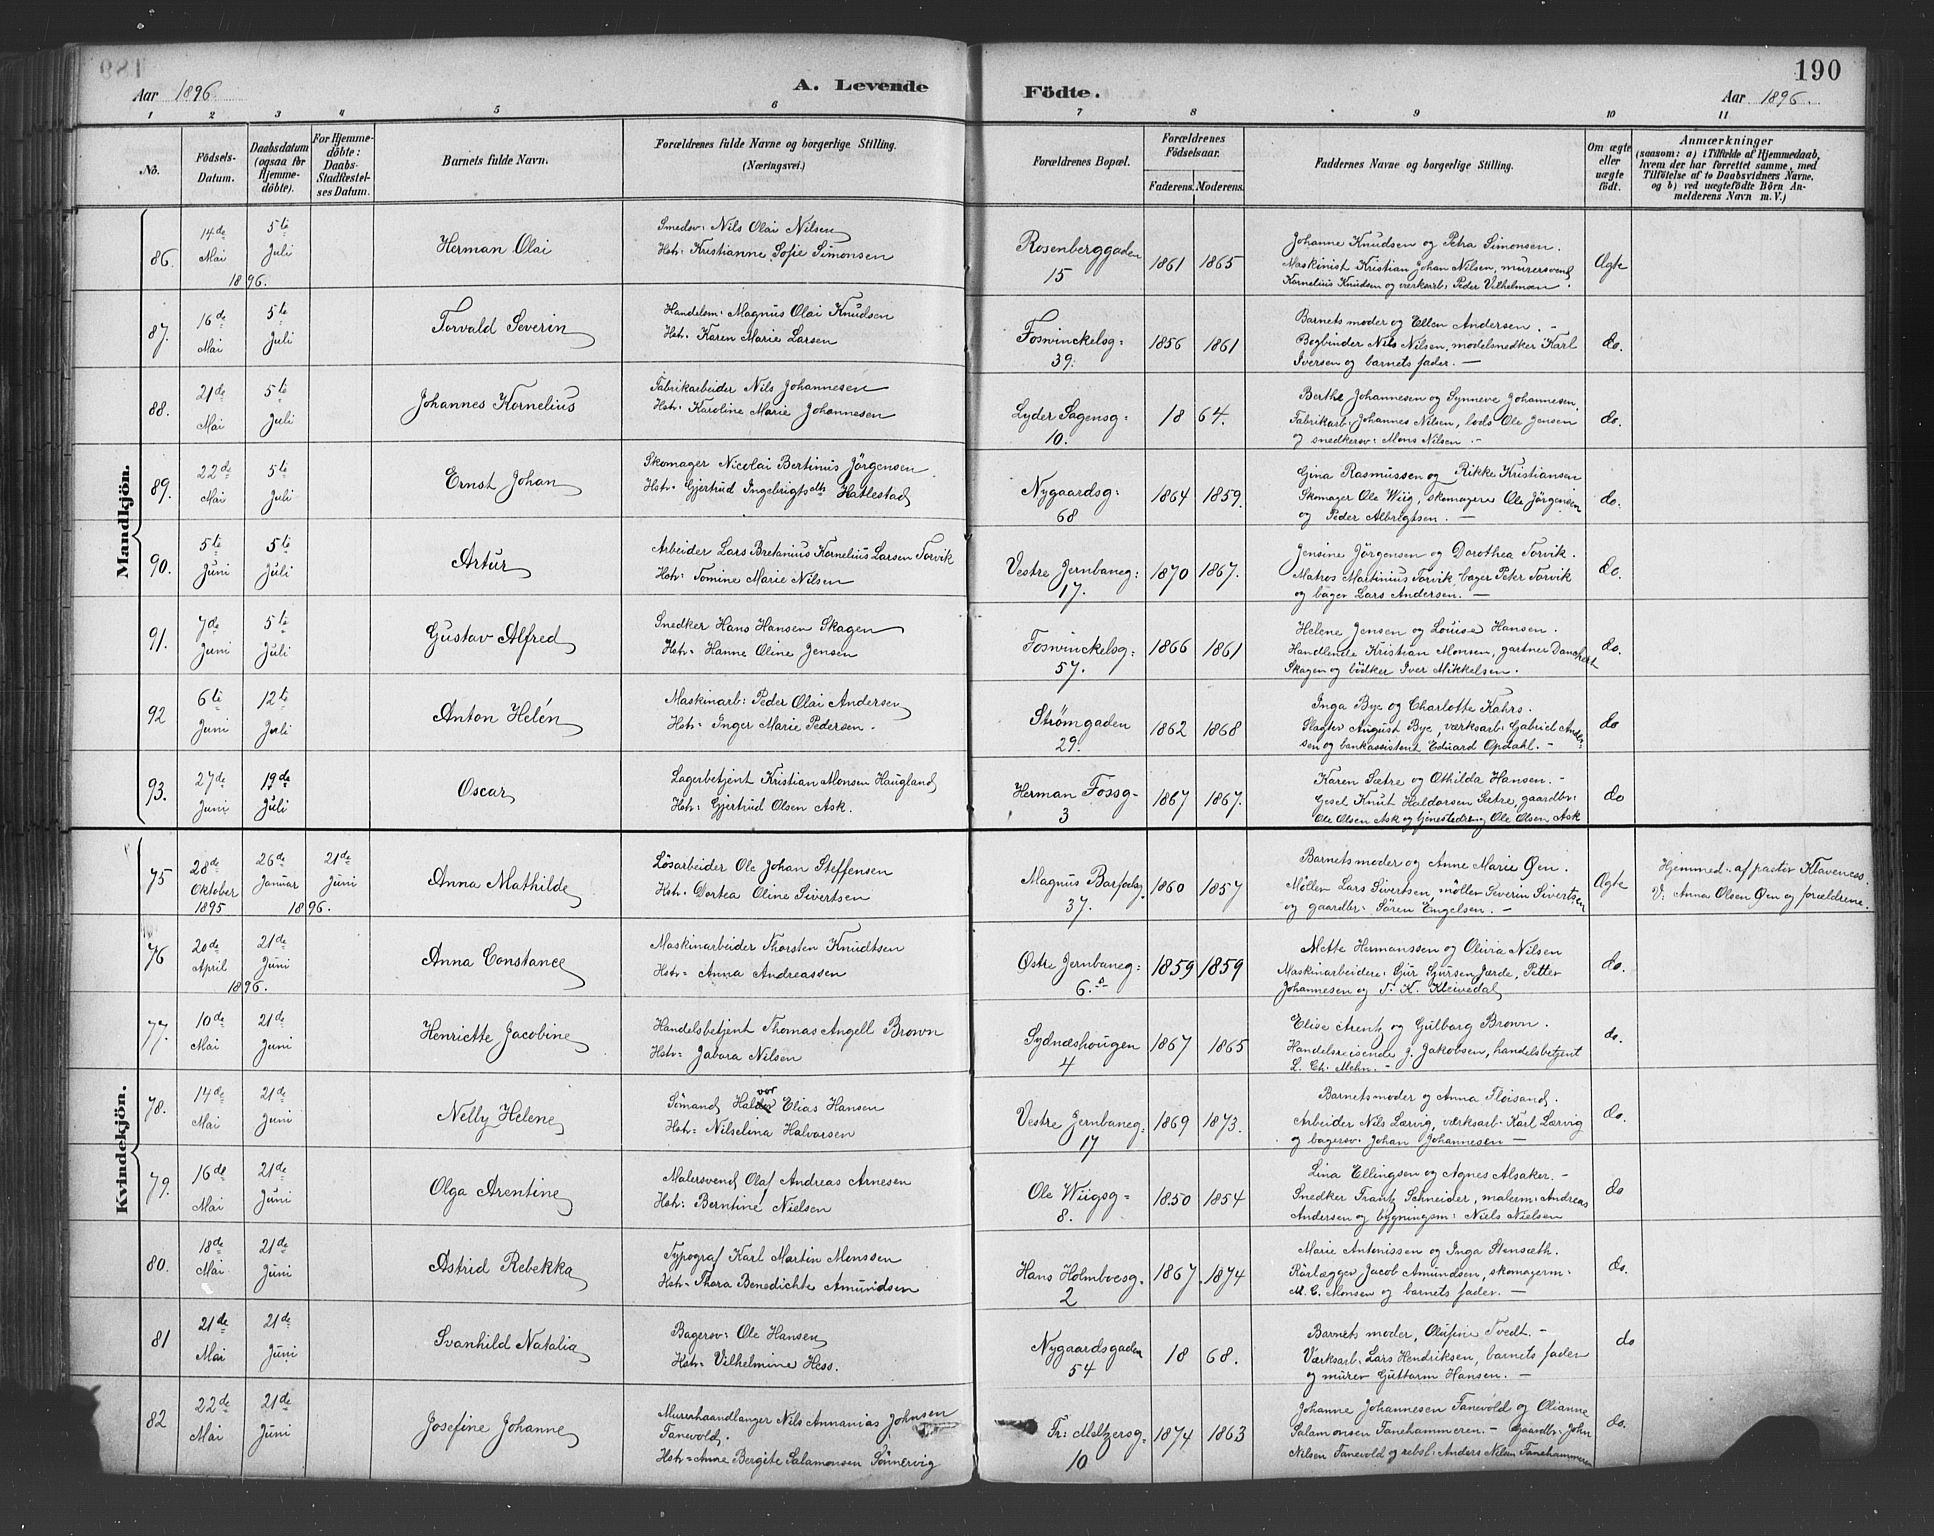 189
Aar 1896.
A. Levende
Födte.
190
Aar 1896.
1 2 3 4 5 6 7 8 9 10 11
No.
Födsels-Datum.
Daabsdatum (ogsaa for Hjemme-döbte).
For Hjemme-döbte: Daabs-Stadfæstelses Datum.
Barnets fulde Navn.
Forældrenes fulde Navne og borgerlige Stilling. (Næringsvei.)
Forældrenes Bopæl.
Forældrenes Födselsaar.
Faderens. Moderens.
Faddernes Navne og borgerlige Stilling.
Om ægte eller uægte födt.
Anmærkninger
(saasom: a) i Tilfælde af Hjemmedaab, hvem der har forrettet samme, med Tilföielse af to Daabsvidners Navne, og b) ved uægtefödte Börn Anmelderens Navn m. V.)
Mandkjön.
86. 14de Mai 1896. 5te Juli
Herman Olai
Smedsv: Nils Olai Nilsen
Hstr: Kristianne Sofie Simonsen
Rosenberggaden 15
1861 1865
Johanne Knudsen og Petra Simonsen.
Maskinist Kristian Johan Nilsen, murersvend
Kornelius Knudsen og værksarb: Peder Vilhelmsen.
Ægte
87. 16de Mai 5te Juli
Torvald Severin
Handelsm: Magnus Olai Knudsen
Hstr: Karen Marie Larsen
Fosvinckelsg: 39.
1856 1861
Barnets moder og Ellen Andersen. -
Bogbinder Nils Nilsen, modelsnedker Karl
Iversen og barnets fader. -
do.
88. 21de Mai 5te Juli
Johannes Kornelius
Fabrikarbeider Nils Johannesen
Hstr: Karoline Marie Johannesen
Lyder Sagensg: 10.
18 64.
Berthe Johannesen og Synneve Johannesen.
Fabrikarb: Johannes Nilsen, lods Ole Jensen
og snedkersv: Mons Nilsen. -
do.
89. 22de Mai 5te Juli
Ernst Johan
Skomager Nicolai Bertinus Jörgensen
Hstr: Gjertrud Ingebrigtsdtr Hatlestad
Nygaardsg: 68
1864 1859.
Gina Rasmussen og Rikke Kristiansen
Skomager Ole Wiig, skomagere Ole Jörgensen
og Peder Albrigtsen. -
do.
90. 5te Juni 5te Juli
Artur
Arbeider Lars Bretanius Kornelius Larsen Torvik
Hstr: Tomine Marie Nilsen
Vestre Jernbaneg: 17.
1870 1867.
Jensine Jörgensen og Dorothea Torvik.
Matros Martinius Torvik, bager Peter Torvik
og bager Lars Andersen. -
do.
91. 7de Juni 5te Juli
Gustav Alfred
Snedker Hans Hansen Skagen
Hstr: Hanne Oline Jensen
Fosvinckelsg: 57.
1866 1861
Helene Jensen og Louise Hansen.
Handlende Kristian Monsen, gartner Danckert
Skagen og bödker Iver Mikkelsen.
do.
92 6te Juni 12te Juli
Anton Helén
Maskinarb: Peder Olai Andersen
Hstr: Inger Marie Pedersen.
Strömgaden 29.
1862 1868
Inga Bye og Charlotte Kahrs.
Slagter August Bye, værksarb: Gabriel Ander-
sen og bankassistent Eduard Opdahl. -
do
93. 27de Juni 19de Juli
Oscar
Lagerbetjent Kristian Monsen Haugland
Hstr: Gjertrud Olsen Ask.
Herman Fossg- 3
1867 1867.
Karen Sætre og Othilda Hansen. -
Gesel Knut Haldorsen Sætre, gaardbr:
Ole Olsen Ask og tjenestedreng Ole Olsen Ask
do
Kvindekjön.
75 28de Oktober 1895 26de Januar 21de Juni 1896.
Anna Mathilde
Lösarbeider Ole Johan Steffensen
Hstr: Dortea Oline Sivertsen
Magnus Barfodsg. 37.
1860 1857
Barnets moder og Anne Marie Øen.
Møller Lars Sivertsen, møller Severin Sivertsen
og gaardbr: Sören Engelsen. -
Ægte
Hjemmed: af pastor Klavenes.
V: Anna Olsen Øen og forældrene.
76 20de April 1896. 21de Juni
Anna Constance
Maskinarbeider Thorsten Knudtsen
Hstr: Anna Andreassen
Østre Jernbaneg: 6.a
1859 1859
Mette Hermanssen og Olivia Nilsen
Maskinarbeidere: Gjur Gjursen Jærde, Petter
Johannesen og T. K. Kleivedal
do.
77. 10de Mai 21de Juni
Henriette Jacobine
Handelsbetjent Thomas Angell Brown
Hstr: Jabora Nilsen
Sydnæshougen 4
1867 1865
Elise Arentz og Gulborg Brown.
Handelsreisende J. Jakobsen, handelsbetjent
L. Ch. Mehn. -
do.
78. 14de Mai 21de Juni
Nelly Helene
Sömand Halvor Elias Hansen
Hstr: Nilselina Halvorsen
Vestre Jernbaneg: 17
1869 1873.
Barnets moder og Anna Floisand.
Arbeider Nils Lærvig, værksarb: Karl Lærvig
og bagersv: Johan Johannesen -
do.
79. 16de Mai 21de Juni
Olga Arentine
Malersvend Olaf Andreas Arnesen
Hstr: Berntine Nielsen
Ole Wiigsg= 8.
1850 1854
Lina Ellingsen og Agnes Alsaker. -
Snedker Frantz Schneider, malerm: Andreas
Andersen og bygningsm: Niels Nielsen
do
80. 18de Mai 21de Juni
Astrid Rebekka
Typograf Karl Martin Monssen
Hstr: Thora Benedichte Amundsen
Hans Holmboesg: 2
1867. 1874
Marie Antonissen og Inga Stensæth.
Rörlægger Jacob Amundsen, skomagerm:
M. C. Monsen og barnets fader. -
do.
81 21de Mai 21de Juni
Svanhild Natalia
Bagersv: Ole Hansen
Hstr: Vilhelmine Hess.
Nygaardsgaden 54
18 68.
Barnets moder, Olufine Tvedt. -
Værksarb: Lars Hendriksen, barnets fader
og murer Guttorm Hansen. -
do
82 22de Mai 21de Juni
Josefine Johanne
Murerhaandlanger Nils Annanias Johnsen
Tanevold.
Hstr: Anne Bergite Salamonsen Sönnervig
Fr: Meltzersg. 10
1874 1863
Johanne Johannesen Tanevold og Olianne
Salamonsen Tanehammeren. - Gaardbr: John
Nilsen Tanevold og rebsl: Anders Nilsen Tanehammeren
do.